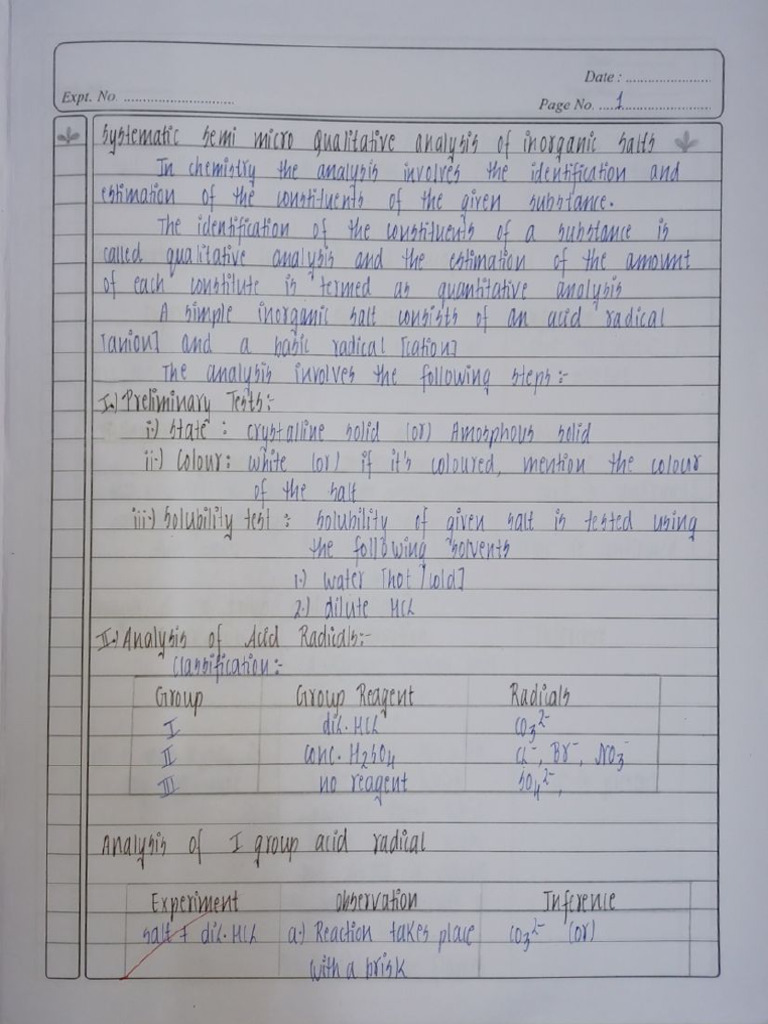 Date : ........................
Expt. No. .............................
Page No. ....1......................
Systematic semi micro qualitative analysis of inorganic salts
In chemistry the analysis involves the identification and
estimation of the constituents of the given substance.
The identification of the constituents of a substance is
called qualitative analysis and the estimation of the amount
of each constitute is termed as quantitative analysis
A simple inorganic salt consists of an acid radical
[anion] and a basic radical [cation]
The analysis involves the following steps :-
I.) Preliminary Tests:-
i.) State : crystalline solid (or) Amosphous solid
ii.) Colour : white (or) if it's coloured, mention the colour
of the salt
iii.) Solubility test : solubility of given salt is tested using
the following solvents
1.) water [hot / cold]
2.) dilute HCl
II.) Analysis of Acid Radicals:-
Classification:-
Group Group Reagent Radicals
I dil. HCl CO₃²⁻
II conc. H₂SO₄ Cl⁻, Br⁻, NO₃⁻
III no reagent SO₄²⁻,
Analysis of I group acid radical
Experiment Observation Inference
Salt + dil. HCl a.) Reaction takes place CO₃²⁻ (or)
with a brisk